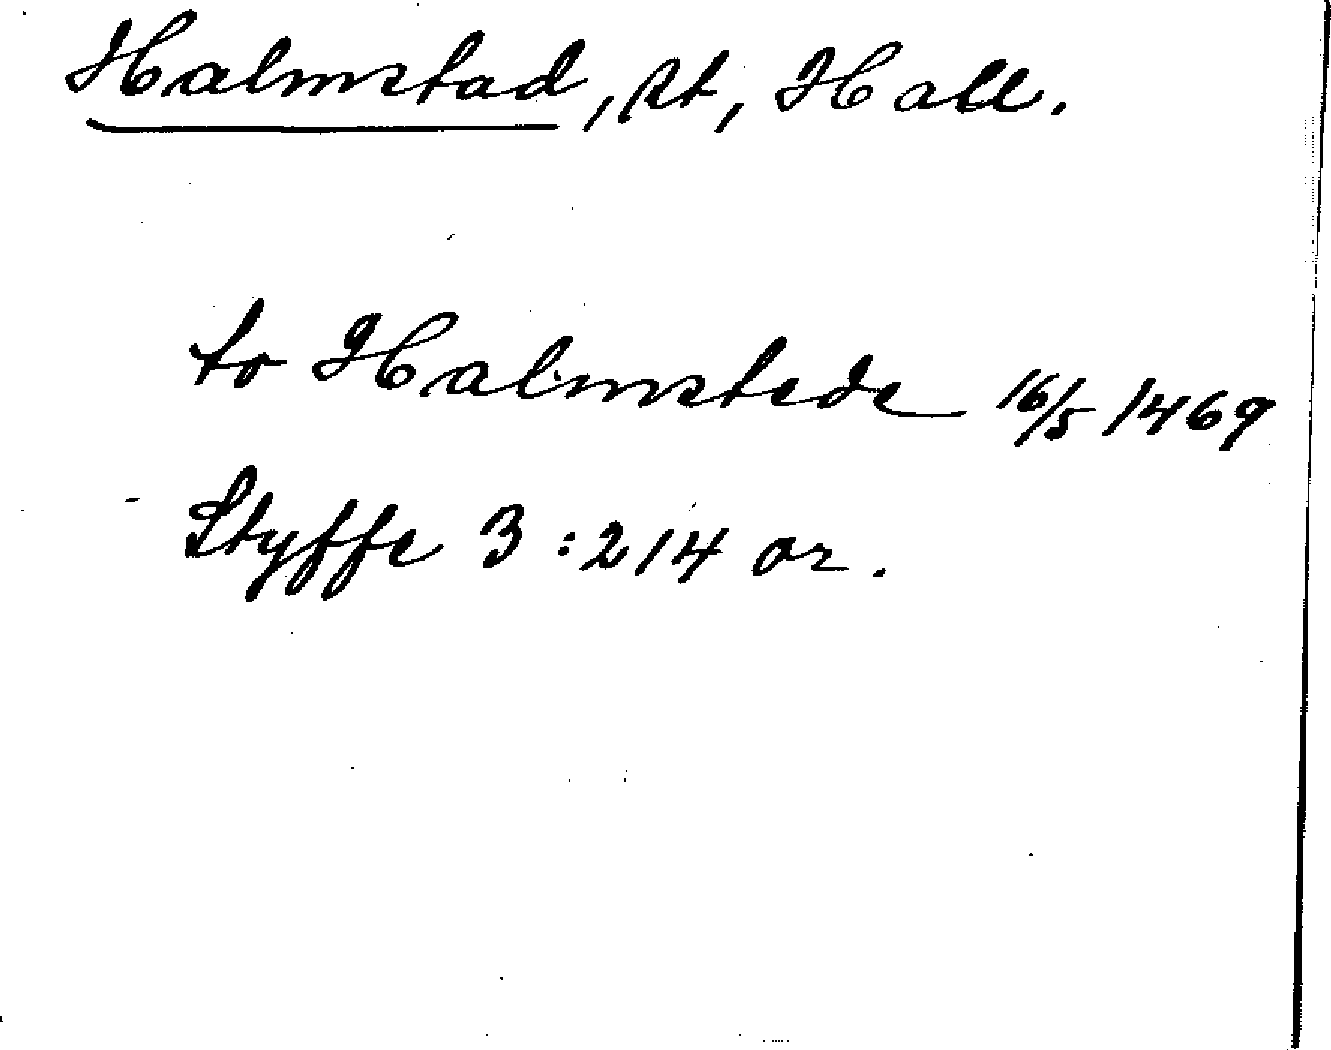 Halmstad, st, Hall.
to Halmstede 16/5 1469
Styffe 3:214 or.